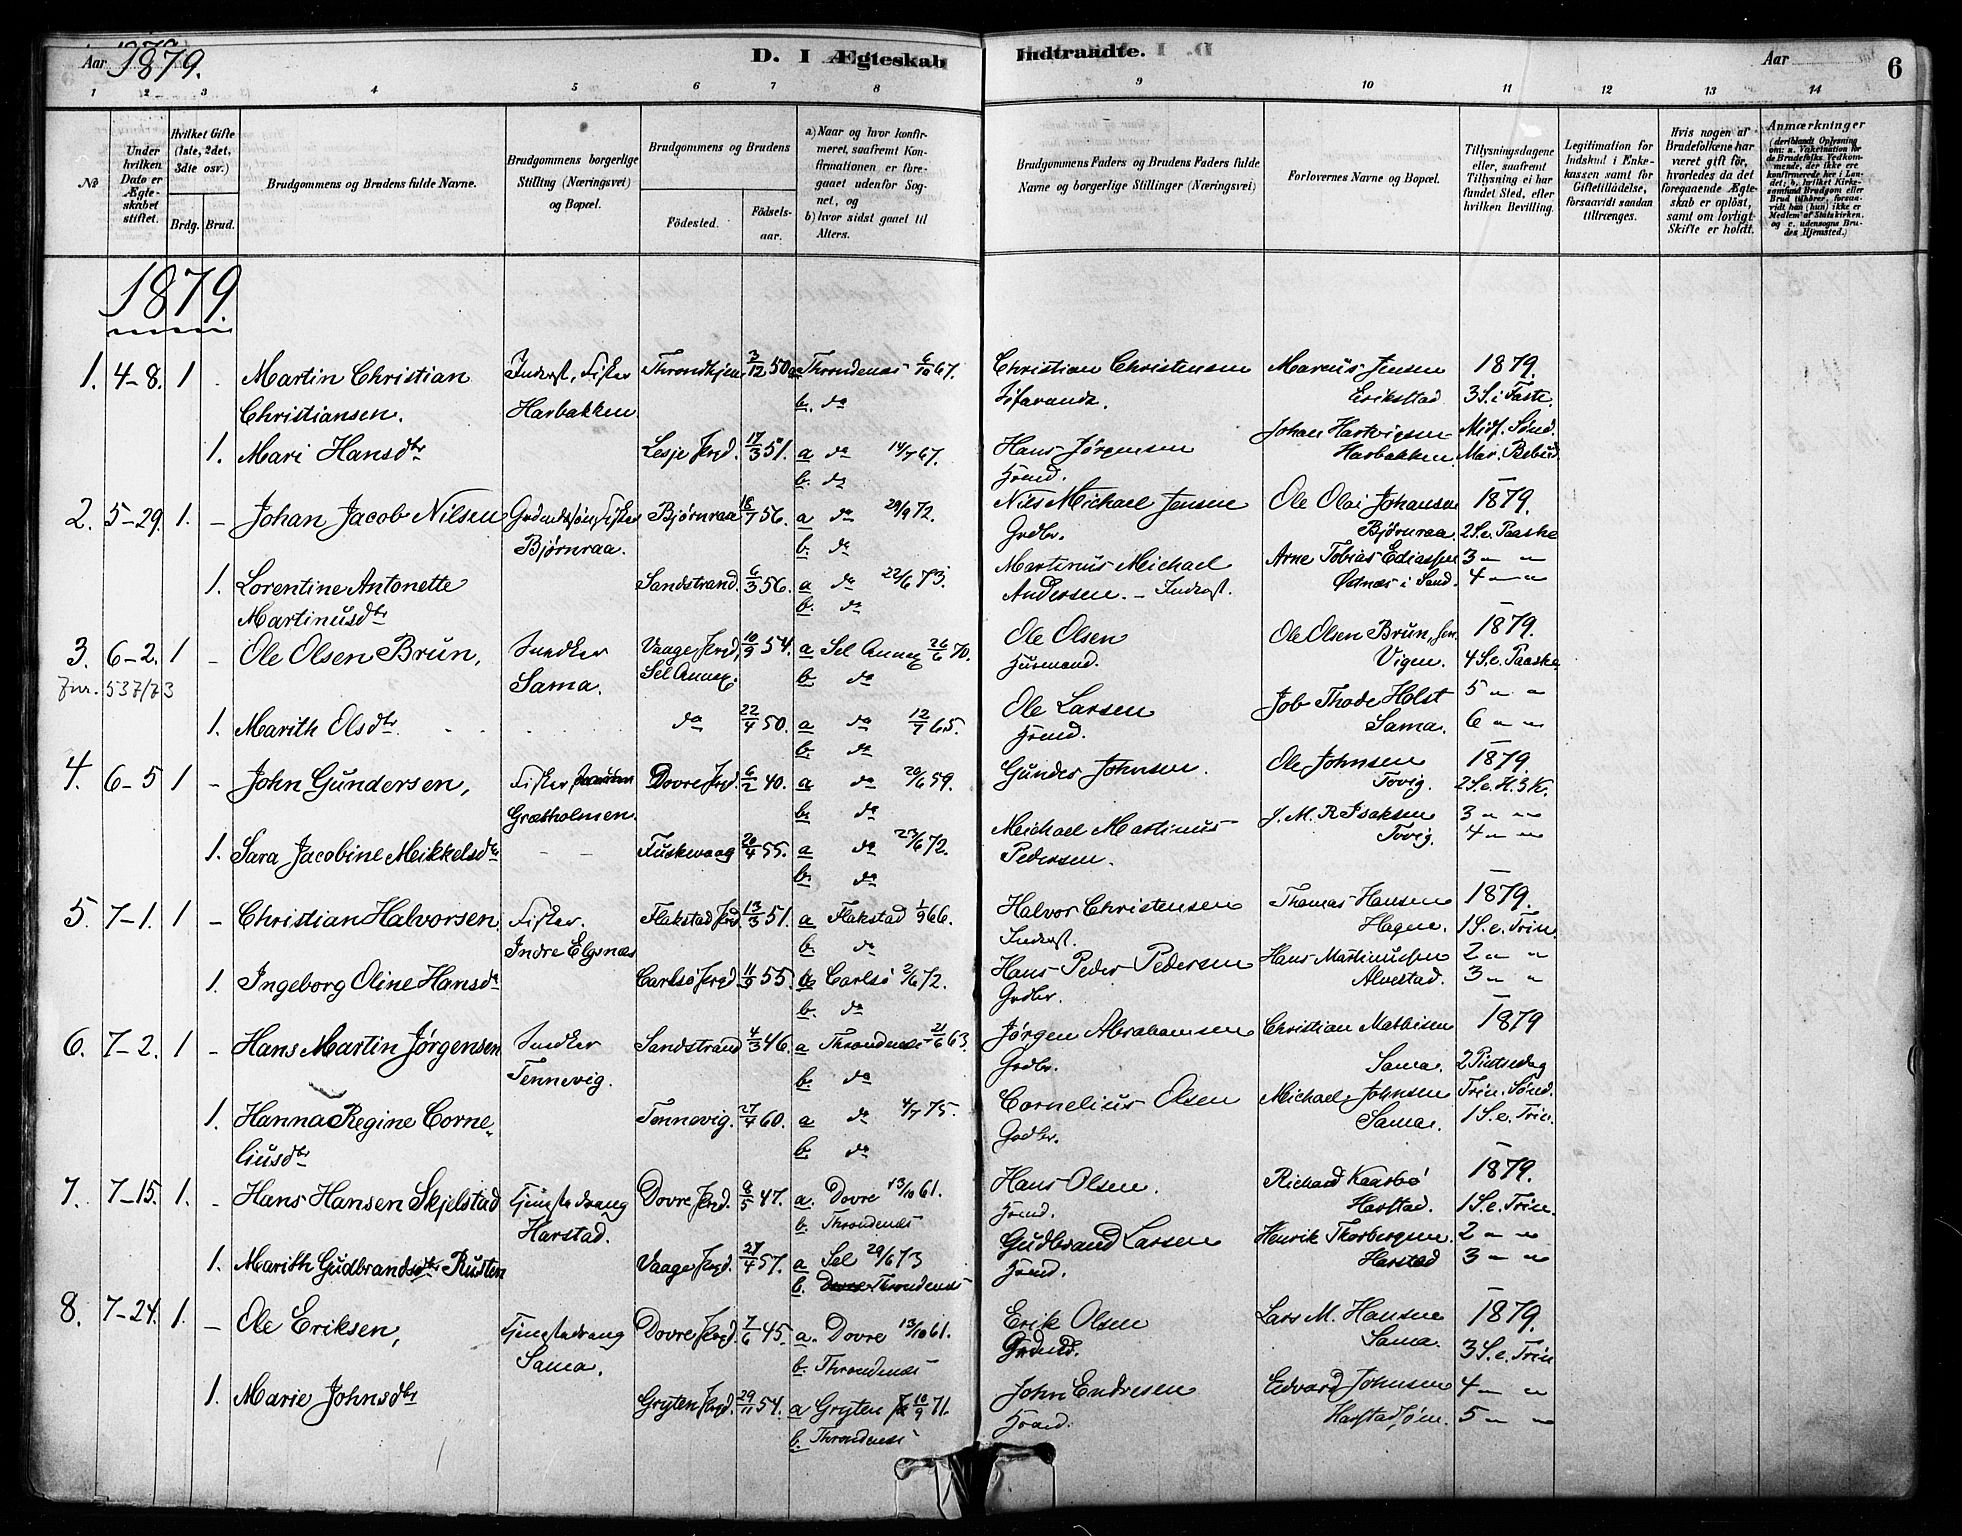 Aar 1879.
D. I Ægteskab Indtraadte.
Aar
6
1 2 3 4 5 6 7 8 9 10 11 12 13 14
No
Under hvilken Dato er Ægteskabet stiftet.
Hvilket Gifte (1ste, 2det, 3die osv.)
Brdg. Brud.
Brudgommens og Brudens fulde Navne.
Brudgommens borgerlige Stilling (Næringsvei) og Bopæl.
Brudgommens og Brudens
Födested. Födselsaar.
a) Naar og hvor konfirmeret, saafremt Konfirmationen er foregaaet udenfor Sognet, og
b) hvor sidst gaaet til Alters.
Brudgommens Faders og Brudens Faders fulde Navne og borgerlige Stillinger (Næringsvei)
Forlovernes Navne og Bopæl.
Tillysningsdagene eller, saafremt Tillysning ei har fundet Sted, efter hvilken Bevilling.
Legitimation for Indskud i Enkekassen samt for Giftetilladelse, forsaavidt saadan tiltrænges.
Hvis nogen af Brudefolkene har været gift för, hvorledes da det foregaaende Ægteskab er oplöst, samt om lovligt Skifte er holdt.
Anmærkninger
(deriblandt Oplysning om: a. Vakcination for de Brudefolks Vedkommende, der ikke ere konfirmerede her i Landet; b. hvilket Kirkesamfund Brudgom eller Brud tilhörer, forsaavidt han (hun) ikke er Medlem af Statskirken. og c. udensogns Brudes Hjemsted.)
1879.
1. 4-8. 1 - Martin Christian Inderst, Fisker Throndhjem 3/12 50 a Throndenæs 6/10 67. Christian Christensen Marcus Jensen 1879.
Christiansen. Harbakken b. do Eriksstad 3 S. i Faste.
Johan Hartvigsen Midf. Sønd.
1. Mari Hansdtr Lesje Prgd. 17/3 51. a do 14/7 67. Hans Jørgensen Harbakken. Mar. Bebud.
b. do Hsmd.
2. 5-29. 1. - Johan Jacob Nilsen Grdmdssøn, Fisker Bjørnraa 18/7 56. a do 29/9 72. Nils Michael Jensen Ole Olai Johansen 1879.
Bjørnraa. b. do Grdbr. Bjørnraa. 2 S. e. Paaske
1. Lorentine Antonette Sandstrand. 6/3 56. a do 22/6 73. Martinus Michael Arne Tobias Ediassen 3 " "
Martinusdtr b. do Andersen. - Inderst. Østnæs i Sand. 4 " "
3. 6-2. 1 - Ole Olsen Brun, Snedker Vaage Prgd, 10/9 54. a Sel Annex 26/6 70. Ole Olsen Ole Olsen Brun, sen. 1879.
Jnr. 537/73 Sama. Sel Annex. b. do Husmand. Vigen. 4 S. e. Paaske
1. Marith Olsdtr. do 22/4 50. a do 12/7 65. Ole Larsen Job Thode Holst 5 " "
b. do Hsmd. Sama. 6 " "
4. 6-5 1 - John Gundersen, Fisker Dovre Prgd. 6/2 40. a do 20/6 59. Gunder Johnsen. Ole Johnsen 1879.
Græsholmen. b. do Tovig. 2 S. e. H. 3 K.
1. Sara Jacobine Meikkelsdtr - - Fuskevaag 20/4 55. a do 23/6 72. Meichael Martinus J. M. R. Isaksen 3 " "
b. do Pedersen. Tovig. 4 " "
5. 7-1. 1 - Christian Halvorsen Fisker. Flakstad Prgd 13/3 51. a Flakstad 1/9 66. Halvor Christensen Thomas Hansen 1879.
Indre Elgsnæs b. do Inderst. Hagen. 1 S. e. Trin.
1. Ingeborg Oline Hansdr Carlsø Prgd 11/9 55. a Carlsø 2/6 72. Hans Peder Pedersen Hans Martinussen 2 " "
b. do Grdbr. Alvestad. 3 " "
6. 7-2. 1 - Hans Martin Jørgensen Snedker Sandstrand 4/3 46. a Throndenæs 21/6 63. Jørgen Abrahamsen Christian Mathisen 1879
Tennevig. b. do Grdbr. Sama. 2 Pintsedag
1. Hanna Regine Corne- Tennevig. 27/4 60. a do 4/7 75. Cornelius Olsen Michael Johnsen Trin. Sønd.
liusdtr b. do Grdbr. Sama. 1 S. e. Trin.
7. 7-15. 1. - Hans Hansen Skjelstad Tjenestedreng Dovre Prgd. 8/5 47. a. Dovre 13/10 61. Hans Olsen. Richard Kaarbø 1879.
Harstad. b. Throndenæs Hsmd. Harstad. 1 S. e. Trin.
1. Marith Gudbrandsdtr Rusten Vaage Prgd. 27/4 57. a Sel 29/6 73 Gudbrand Larsen Henrik Thorbergsen. 2 " "
b. Dovre Throndenæs Hsmd. Harstad 3 " "
8. 7-24. 1. - Ole Eriksen, Tjenestedreng Dovre Prgd. 7/6 45. a. Dovre 13/10 61. Erik Olsen Lars M. Hansen 1879.
Sama. b. Throndenæs Grdmd. Sama. 3 S. e. Trin
1. Marie Johnsdtr Gryten Prgd. 29/11 54. a Gryten 10/9 71. John Endresen Edvard Johnsen 4 " "
b. Throndenæs Hsmd. Harstadsjøen. 5 " "